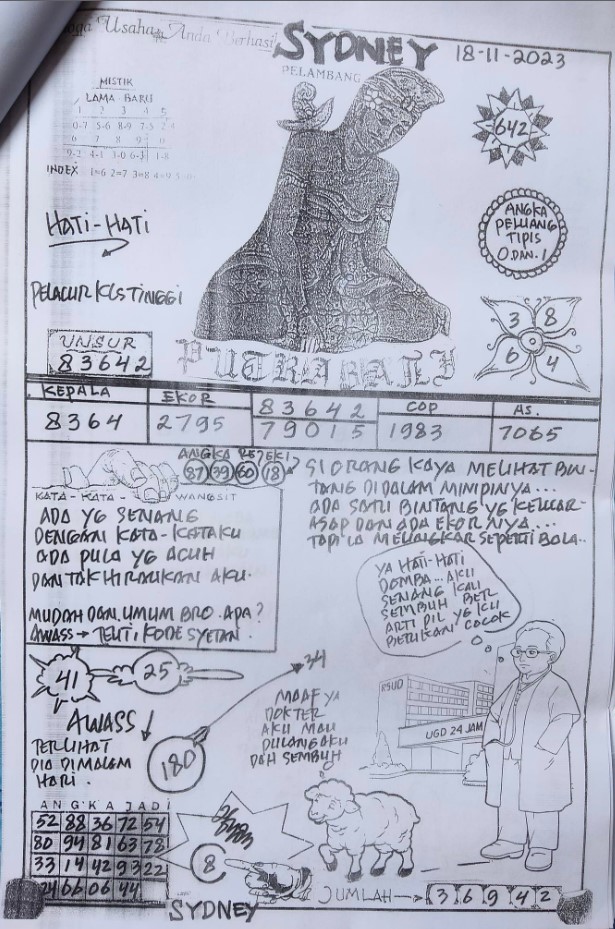 Usaha Anda Berhasil
SYDNEY
18-11-2023
PELAMBANG
MISTIK
LAMA BARU
1 2 3 4 5
0-7 5-6 8-9 7-5 2-4
6 7 8 9 0
0-2 4-1 3-0 6-3 1-8
INDEX 1=6 2=7 3=8 4=9 5=0
642
HATI-HATI
ANGKA
PELUANG
TIPIS
0 DAN.1
PELACUR KLS TINGGI
3 8
6 4
UNSUR
83642
PUTRA BALI
KEPALA EKOR 83642 COP AS.
8364 2795 79015 1983 7065
ANGKA REJEKI
87 39 60 18
KATA - KATA - WANGSIT
ADA YG SENANG
DENGAN KATA-KATAKU
ADA PULA YG ACUH
DAN TAK HIRAUKAN AKU.
MUDAH DAN.UMUM BRO.APA?
AWASS → TELITI KODE SYETAN.
SI ORANG KAYA MELIHAT BIN-
TANG DIDALAM MIMPINYA...
ADA SATU BINTANG YG KELUAR-
ASAP DAN ADA EKORNYA...
TAPI IA MELINGKAR SEPERTI BOLA..
YA HATI-HATI
DOMBA... AKU
SENANG KAU
SEMBUH BER
ARTI PIL YG KU
BERIKAN COCOK
41
25
34
AWASS
TERLIHAT
DIA DIMALAM
HARI.
180
MAAF YA
DOKTER
AKU MAU
PULANG AKU
DAH SEMBUH
RSUD
UGD 24 JAM
ANGKA JADI
52 88 36 72 54
80 94 81 63 78
33 14 42 93 22
24 66 06 44
8
SYDNEY
JUMLAH → 3 6 9 4 2